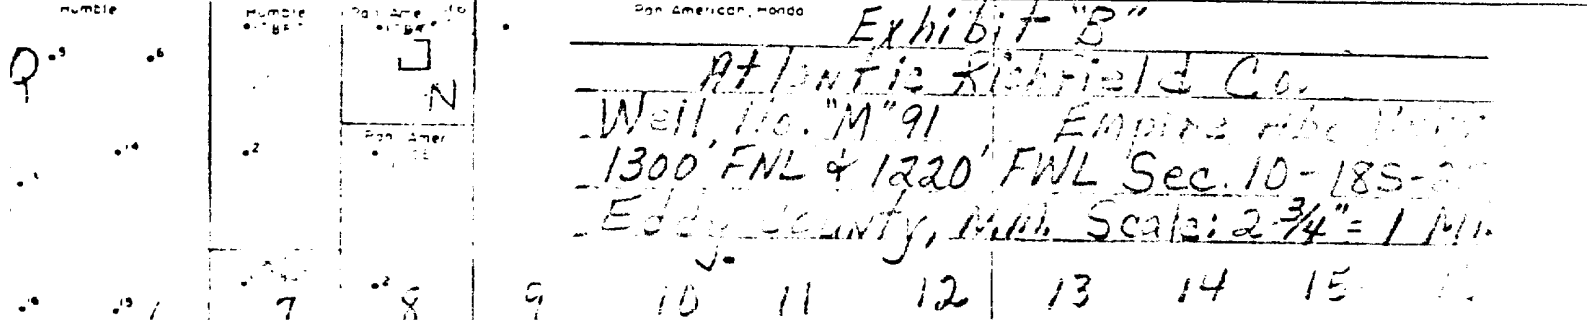 Humble Humble Pan Ame Pan American, Hondo
Exhibit "B"
Q 5 6 J
Atlantic Richfield Co.
N
Well No. "M" 91 Empire Abo Unit
Pan Amer
14 2
1300' FNL & 1220' FWL Sec. 10-18S-2
Eddy County, N.M. Scale: 2 3/4" = 1 Mi.
2
7 8 9 10 11 12 13 14 15